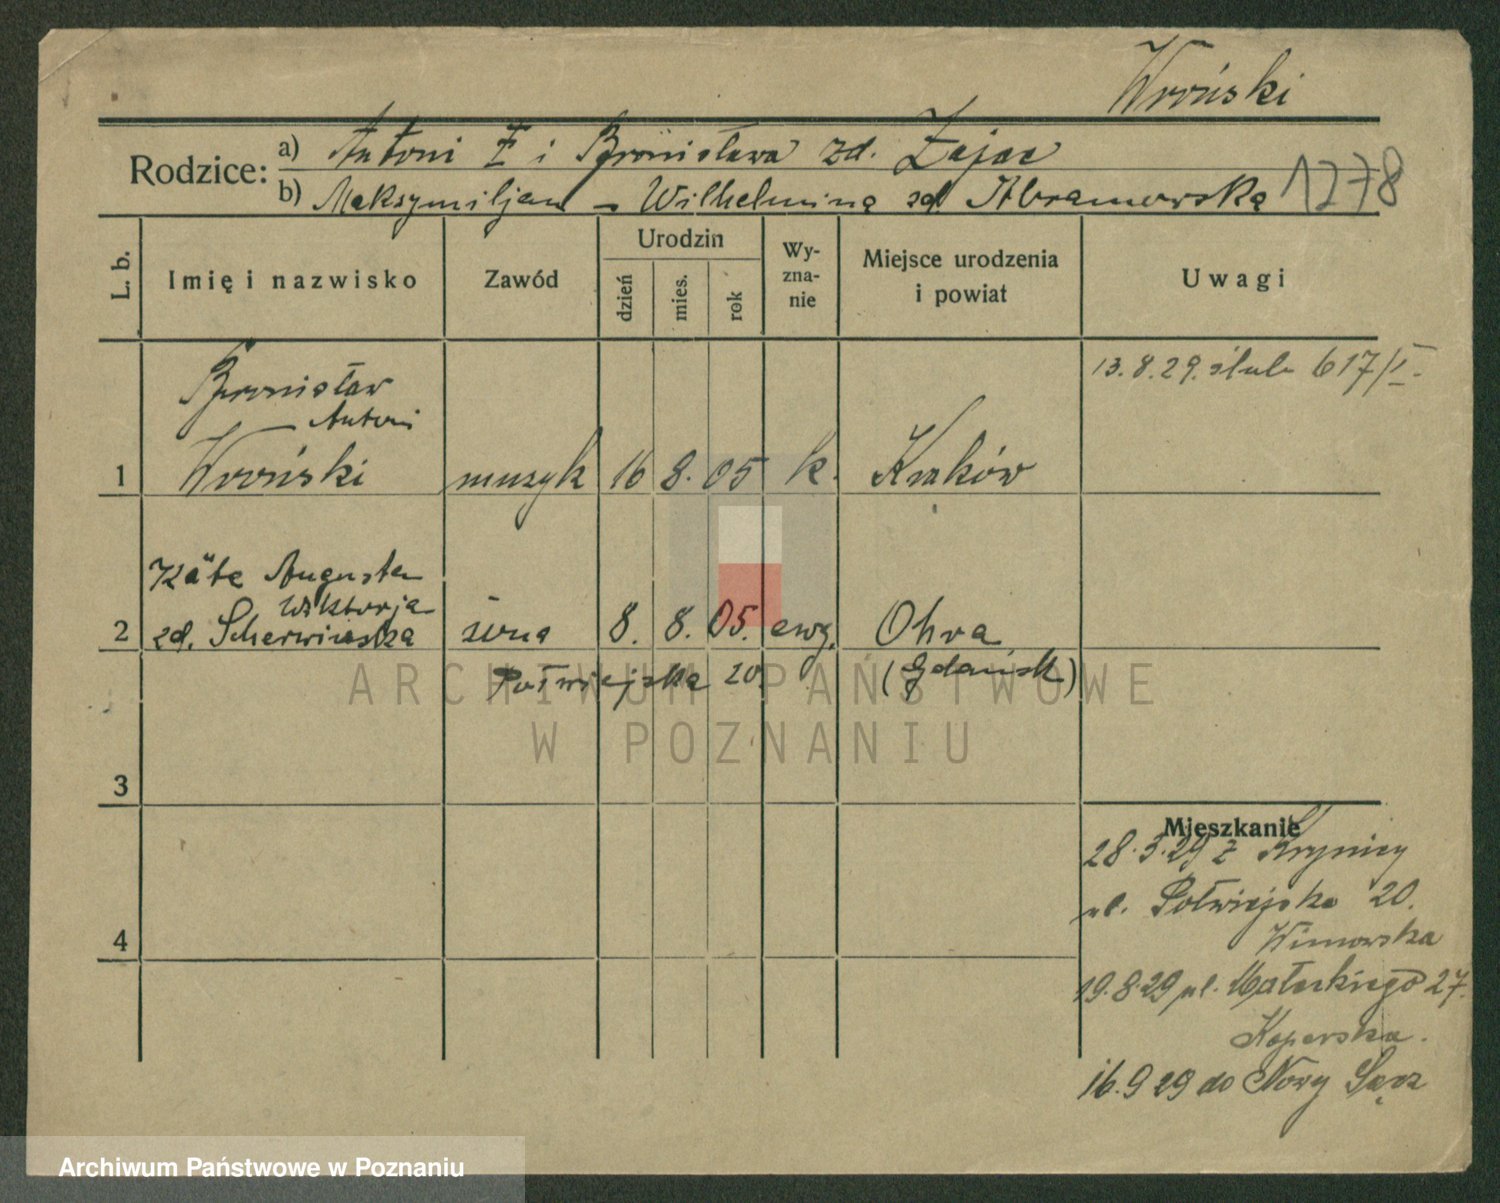 Wroński
Rodzice: a) Antoni i Bronisława zd. Zając
b) Maksymiljan – Wilhelmina zd. Abramowska
1278
L. b.
Imię i nazwisko
Zawód
Urodzin
dzień
mies.
rok
Wy-
zna-
nie
Miejsce urodzenia
i powiat
Uwagi
13.8.29. ślub 617/I.
Bronisław
Antoni
1 Wroński muzyk 16 8. 05 k. Kraków
Käte Augusta
Wiktorja
2 zd. żona 8. 8. 05. ewg. Ohra
Półwiejska 20. (Gdańsk)
ARCHIWUM PAŃSTWOWE
W POZNANIU
3
4
Mieszkanie
28.5.29 z Krynicy
ul. Półwiejska 20.
19.8.29 ul. Małeckiego 27.
Koperska.
16.9 29 do Nowy Sącz
Archiwum Państwowe w Poznaniu